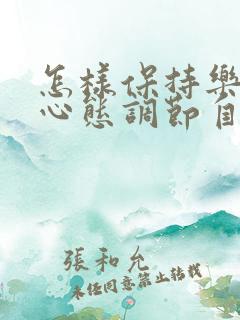 怎樣保持樂
心態調節自
張和允
未經同意禁止轉載